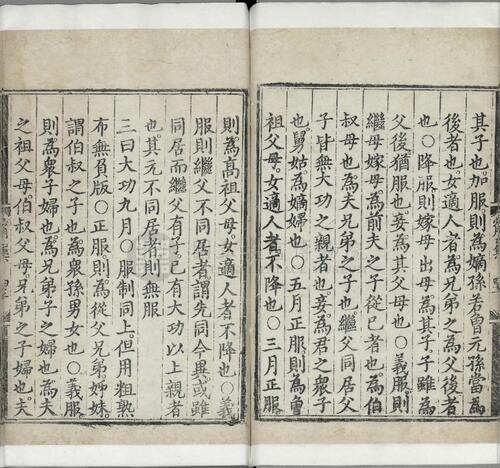 其子也加服則爲嫡孫若曾元孫當爲
後者也女適人者爲兄弟之爲父後者
也○降服則嫁母出母爲其子子雖爲
父後猶服也妾爲其父母也○義服則
繼母嫁母爲前夫之子從已者也爲伯
叔母也爲夫兄弟之子也繼父同居父
子皆無大功之親者也妾爲君之衆子
也舅姑爲嫡婦也○五月正服則爲曾
祖父母女適人者不降也○三月正服
則爲高祖父母女適人者不降也○義
服則繼父不同居者謂先同今異或雖
同居而繼父有子已有大功以上親者
也其元不同居者則無服
三曰大功九月○服制同上但用粗熟
布無負版○正服則爲從父兄弟姊妹
謂伯叔之子也爲衆孫男女也○義服
則爲衆子婦也爲兄弟子之婦也爲夫
之祖父母伯叔父母兄弟之子婦也夫